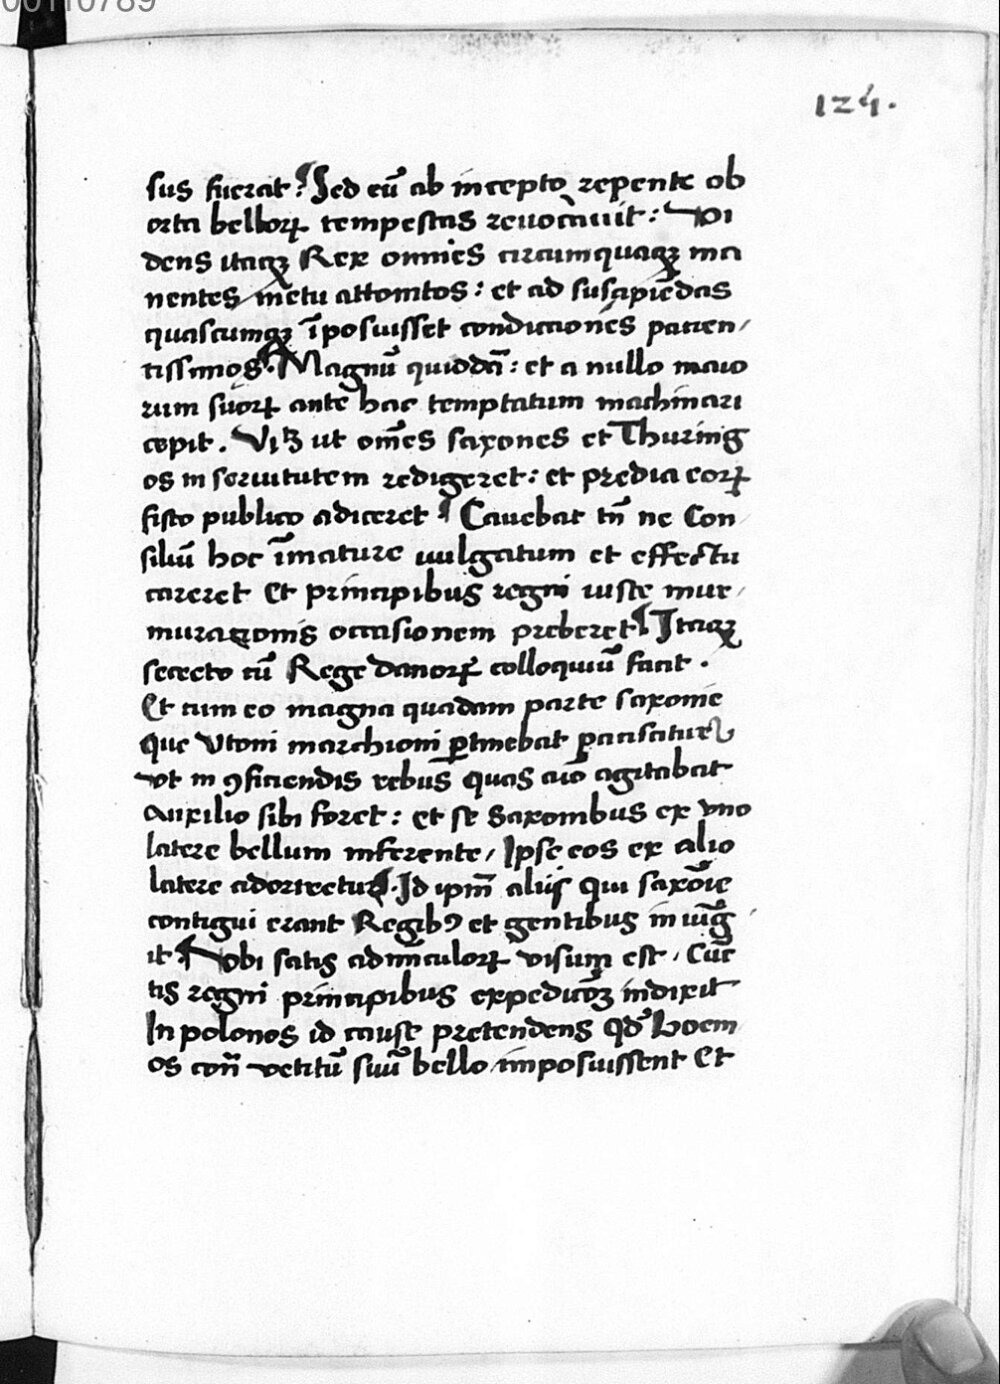 00110789
124.
sus fuerat? Sed eū ab incepto repente ob
orta bellorꝝ tempestas reuocauit: Vi
dens itaqꝫ Rex omnes circumquaqꝫ ma
nentes metu attonitos: et ad suscipiēdas
quascumqꝫ īposuisset condiciones pacien/
tissimos. Magnū quiddā: et a nullo maio
rum suorꝝ ante hac temptatum machinari
cepit. Viꝫ ut om̄es saxones et Thuring
os in seruitutem redigeret: et predia eorꝝ
fisco publico adiceret ¶ Cauebat tn̄ ne Con
siliū hoc īmature uulgatum et effectu
careret Et principibus regni iuste mur/
muracionis occasionem preberet ¶ Itaqꝫ
secreto cū Rege danorꝝ colloquiū facit.
Et cum eo magna quadam parte saxonie
Que Vtoni marchioni ꝑtinebat ꝑaciscitur
vt in ꝯficiendis rebus quas aīo agitabat
Auxilio sibi foret: et se Saxonibus ex vno
latere bellum inferente/ Ipse eos ex alio
latere adorirectur ¶. Id ip̄m alijs Qui saxōie
contigui erant Regibꝰ et gentibus in iūg/
it ¶ Vbi satis adm̄iculorꝝ visum est. Cūc
tis regni principibus expedicōꝫ indixit
In polonos id cause pretendens qd̄ boem
os con̄ vetitū suū bello imposuissent Et